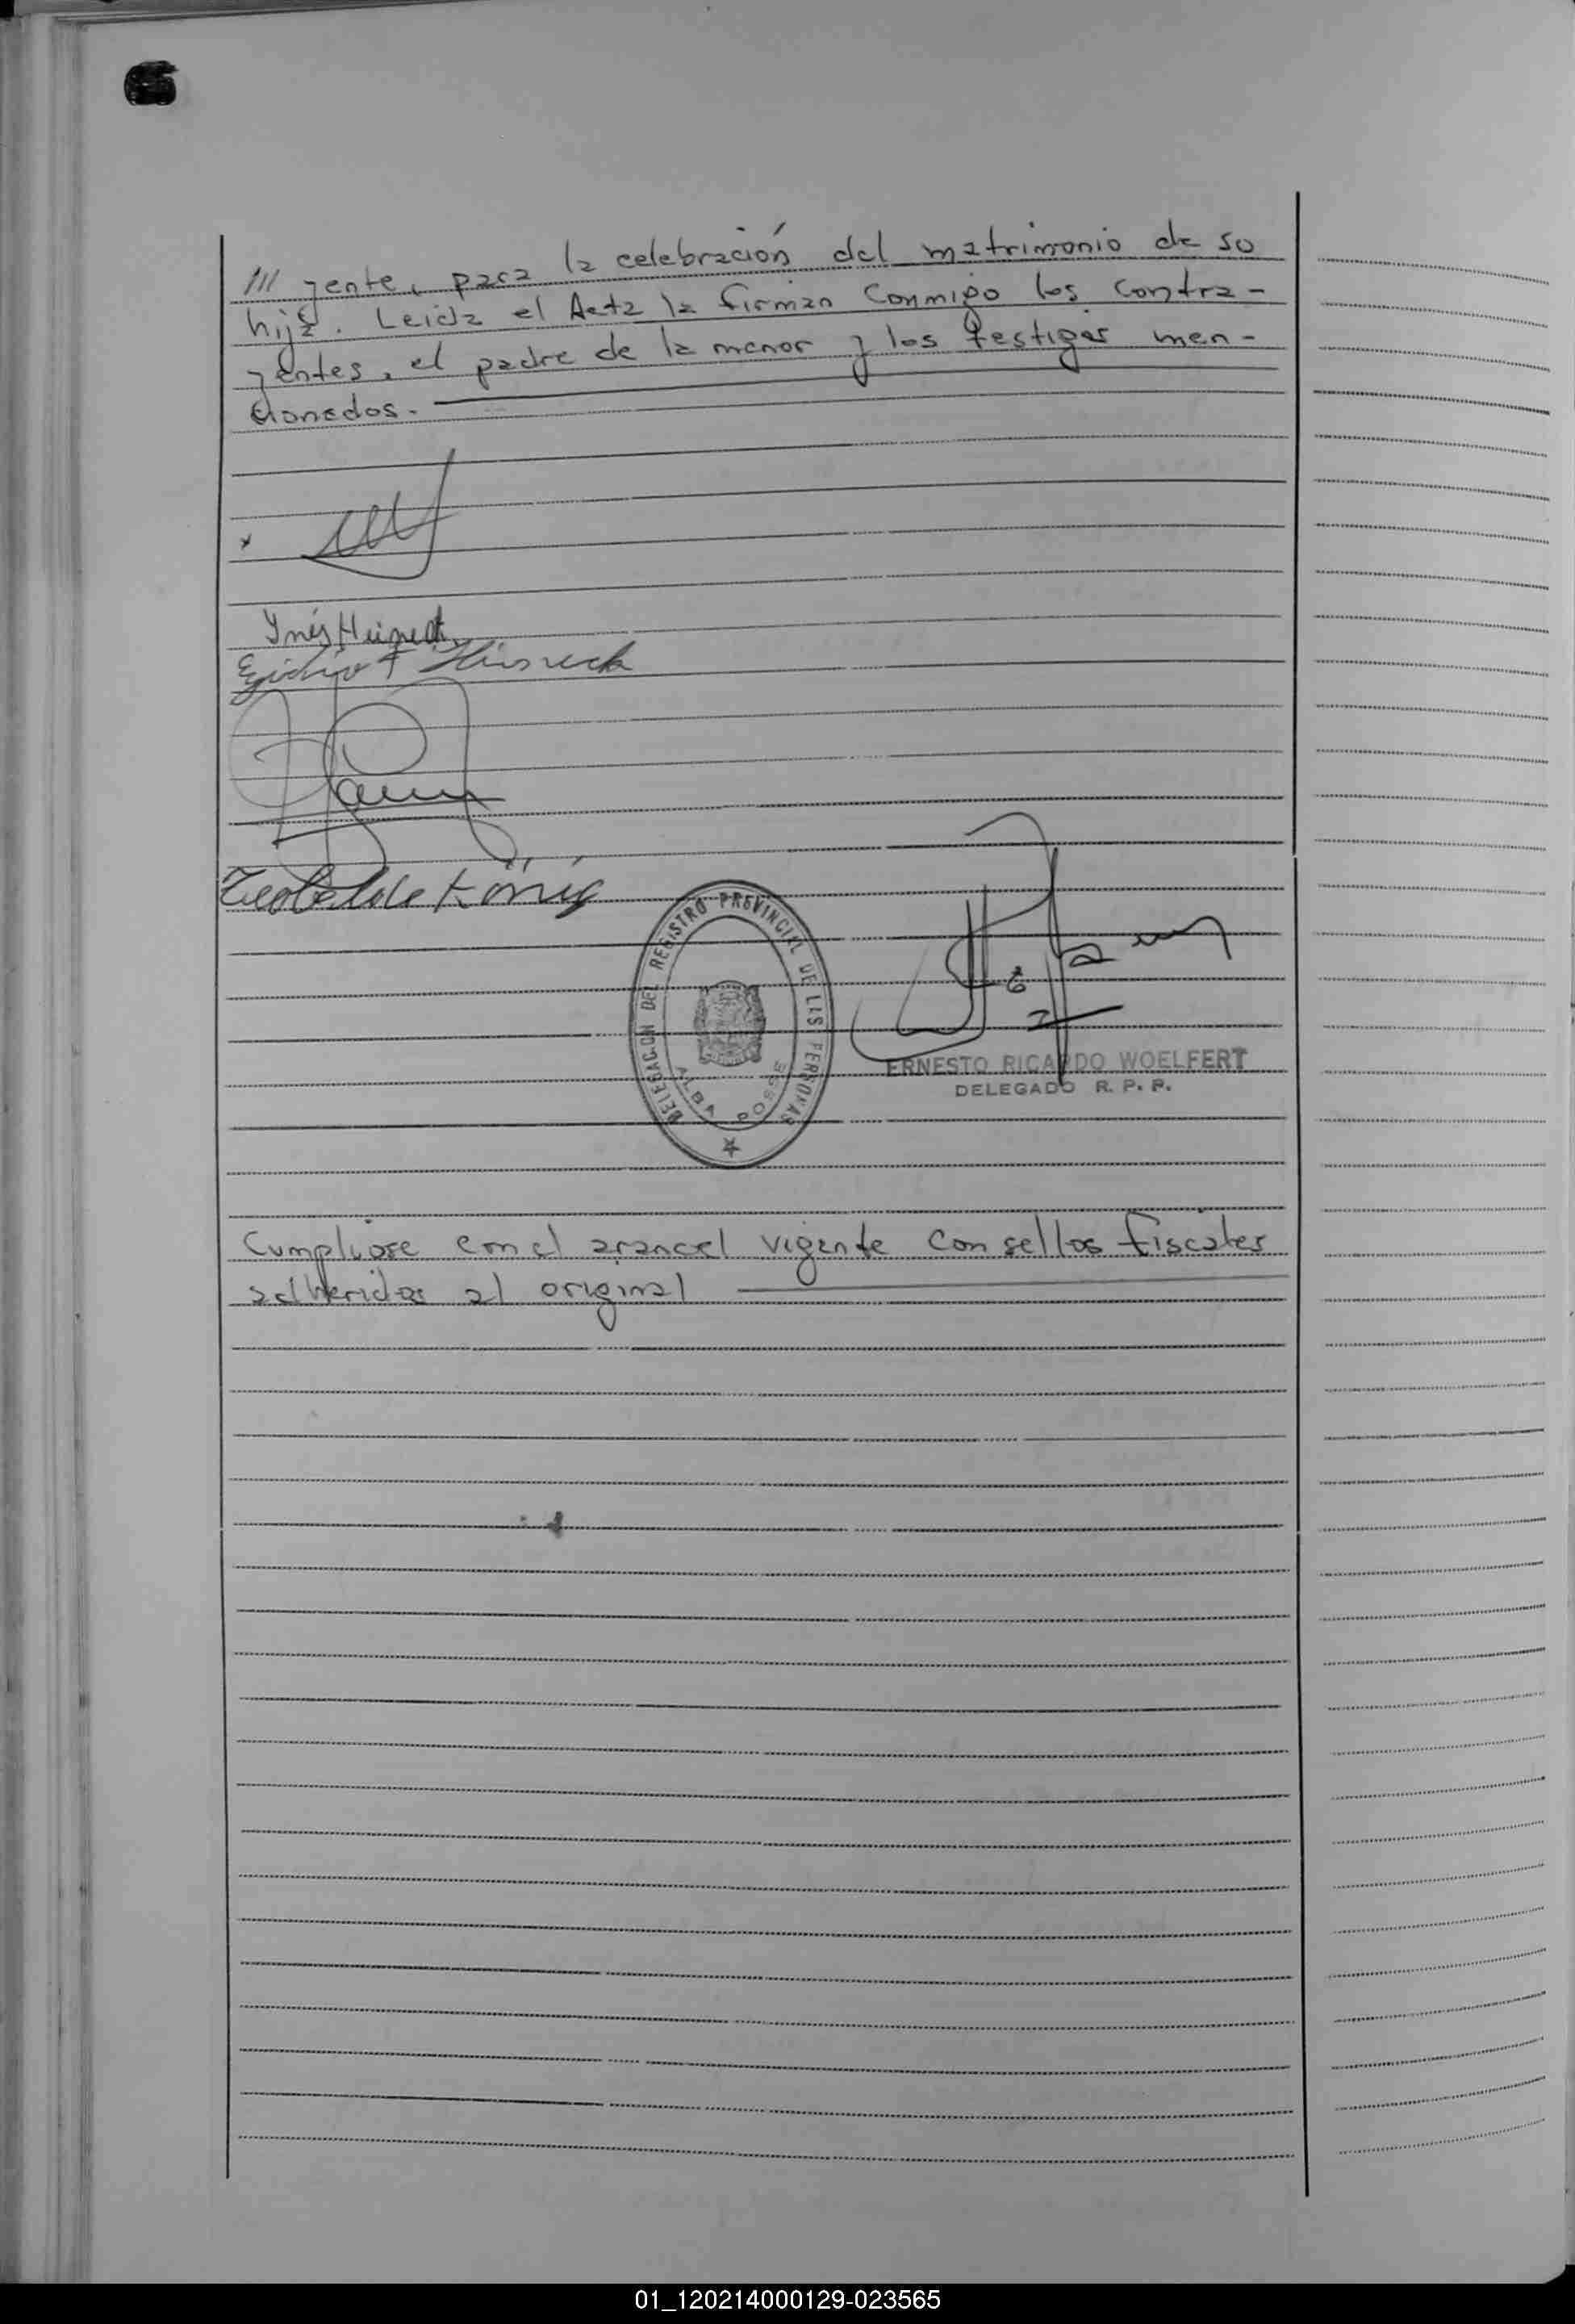 /// yente, para la celebración del matrimonio de su
hija. Leida el Acta la firman conmigo los contra-
yentes, el padre de la menor y los testigos men-
cionados.
x
Inés
König
DELEGACION DEL REGISTRO PROVINCIAL DE LAS PERSONAS
ALBA POSSE
ERNESTO RICARDO WOELFERT
DELEGADO R. P. P.
Cumpliose con el arancel vigente con sellos fiscales
adheridos al original
01_120214000129-023565